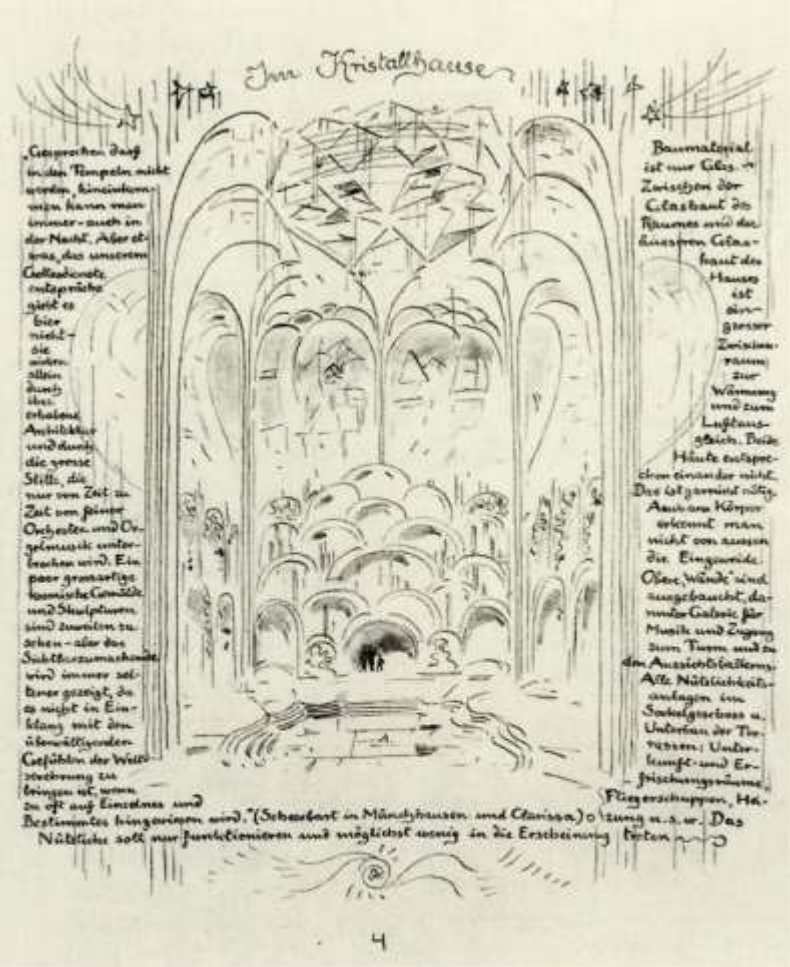 Im Kristallhause
„Gesprochen darf
in den Tempeln nicht
werden, hineinkom-
men kann man
immer - auch in
der Nacht. Aber et-
was, das unserem
Gottesdienste
entspräche
giebt es
hier
nicht -
sie
wirken
allein
durch
ihre
erhabene
Architektur
und durch
die grosse
Stille, die
nur von Zeit zu
Zeit von feiner
Orchester- und Or-
gelmusik unter-
brochen wird. Ein
paar grossartige
kosmische Gemälde
und Skulpturen
sind zuweilen zu
sehen - aber das
Sichtbarzumachende
wird immer sel-
tener gezeigt, da
es nicht in Ein-
klang mit den
überwältigenden
Gefühlen der Welt-
verehrung zu
bringen ist, wenn
zu oft auf Einzelnes und
Bestimmtes hingewiesen wird." (Scheerbart in Münchhausen und Clarissa)
Baumaterial
ist nur Glas.
Zwischen der
Glashaut des
Raumes und der
äusseren Glas-
haut des
Hauses
ist
ein
grosser
Zwischen-
raum
zur
Wärmung
und zum
Luftaus-
gleich. Beide
Häute entspre-
chen einander nicht.
Das ist garnicht nötig.
Auch am Körper
erkennt man
nicht von aussen
die Eingeweide.
Obere Wände sind
ausgebaucht, da-
runter Galerie für
Musik und Zugang
zum Turm und zu
den Aussichtsbalkons.
Alle Nützlichkeits-
anlagen im
Sockelgeschoss u.
Unterbau der Ter-
rassen: Unter-
kunft- und Er-
frischungsräume,
Fliegerschuppen, Hei-
zung u.s.w. Das
Nützliche soll nur funktionieren und möglichst wenig in die Erscheinung treten
4